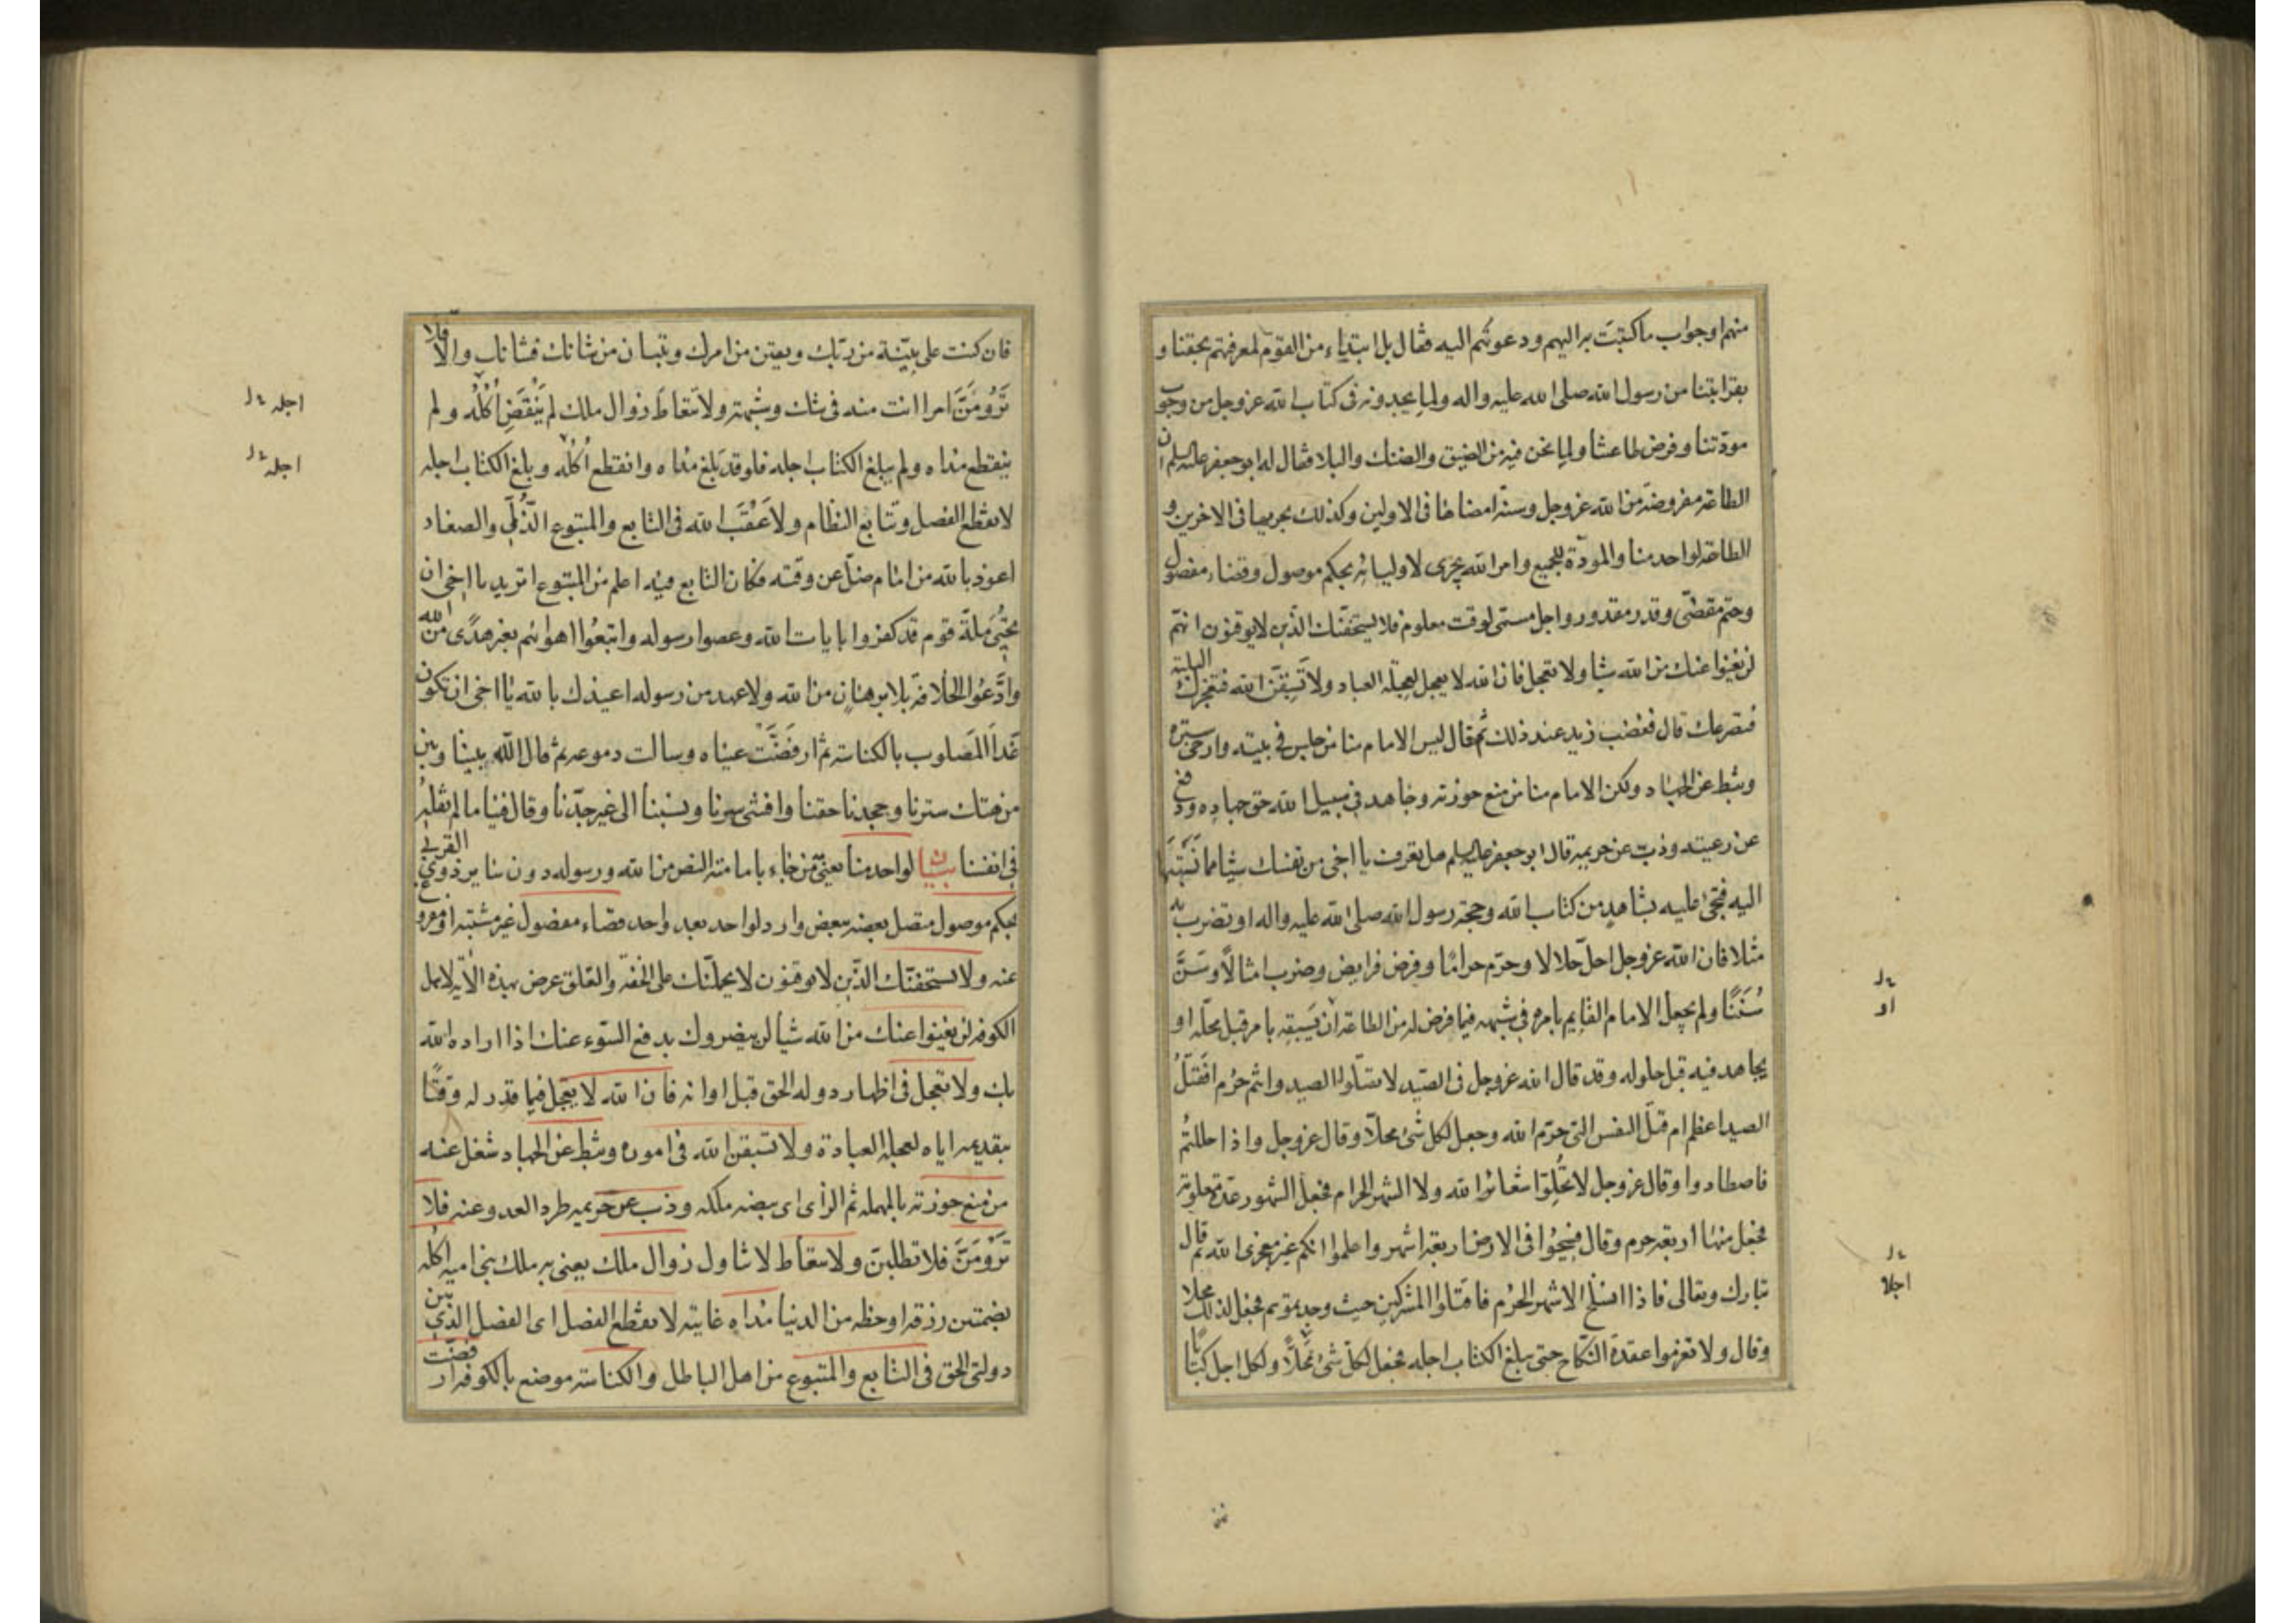 منهم او جواب ما كتبت به اليهم ودعوتهم اليه فقال بل ابتداء من القوم لمعرفتهم بحقنا و
بقرابتنا من رسول الله صلى الله عليه واله ولما يجدونه فى كتاب الله عز وجل من وجوب
مودّتنا وفرض طاعتنا ولما نحن فيه من الضيق والضنك والبلا فقال له ابو جعفر عليه السلم ان
الطاعة مفروضة من الله عز وجل وسنّة امضاها فى الاولين وكذلك يجريها فى الاخرين و
الطاعة لواحد منا والمودّة للجميع وامر الله يجرى لاوليائه بحكم موصول وقضاء مفصول
وحتم مقضىّ وقدر مقدور واجل مسمّى لوقت معلوم فلا يستخفّنّك الذين لا يوقنون انهم
لن يغنوا عنك من الله شيئا ولا تعجل فان الله لا يعجل لعجلة العباد ولا تسبقنّ الله فتعجزك البلية
فتصرعك قال فغضب زيد عند ذلك ثم قال ليس الامام منا من جلس فى بيته وارخى ستره
وثبط عن الجهاد ولكن الامام منا من منع حوزته وجاهد فى سبيل الله حق جهاده ودفع
عن رعيته وذبّ عن حريمه قال ابو جعفر عليه السلم هل تعرف يا اخى من نفسك شيئا مما نسبتها
اليه فتجئ عليه بشاهد من كتاب الله وحجة رسول الله صلى الله عليه واله او تضرب به
مثلا فان الله عز وجل احلّ حلالا وحرّم حراما وفرض فرايض وضرب امثالا وسَنّ
سُنَنًا ولم يجعل الامام القايم بامره فى شبهه فيما فرض له من الطاعة ان يَسبقه بامر قبل محلّه او
يجاهد فيه قبل حلوله وقد قال الله عز وجل فى الصّيد لا تقتلوا الصيد وانتم حرم افقتلُ
الصيد اعظم ام قتل النفس التى حرّم الله وجعل لكل شئ محلّا وقال عز وجل واذا حللتم
فاصطادوا وقال عز وجل لا تُحِلّوا شعائر الله ولا الشهر الحرام فجعل الشهور عدة معلومة
فجعل منها اربعة حرم وقال فسيحُوا فى الارض اربعة اشهر واعلموا انكم غير معجزى الله ثم قال
تبارك وتعالى فاذا انسلخ الاشهر الحُرُم فاقتلوا المشركين حيث وجدتموهم فجعل لذلك محلا
وقال ولا تعزموا عقدة النكاح حتى يبلغ الكتاب اجله فجعل لكل شئ محَلّا ولكل اجل كتابا
او
اجلا
فان كنت على بيّنة من ربّك ويقين من امرك وتبيان من شانك فشانك والّا فلا
تَرُومَنَّ امرا انت منه فى شك وشبهة ولا تتعاطَ زوال ملك لم يَنْقَضِ اُكُلُه ولم
ينقطع مداه ولم يبلغ الكتاب اجله فلو قد بلغ مداه وانقطع اُكُلُه وبلغ الكتاب اجله
لانقطع الفصل وتتابع النظام ولاَعْقَبَ الله فى التابع والمتبوع الذُّلّ والصغار
اعوذ بالله من امام ضلّ عن وقته فكان التابع فيه اعلم من المتبوع اتريد يا اخى ان
تحيى ملة قوم قد كفروا بايات الله وعصوا رسوله واتبعُوا اهوائهم بغير هدًى من الله
وادّعوا الخلافة بلا برهان من الله ولا عهد من رسوله اعيذك بالله يا اخى ان تكون
غدا المَصلوب بالكناسة ثم ارفضّت عيناه وسالت دموعه ثم قال الله بيننا وبين
من هتك سترنا وجحدنا حقنا وافشى سرنا ونسبنا الى غير جدّنا وقال فينا ما لم نقله
فى انفسنا بيان لواحد منا يعنى من جاء بامامته النص من الله ورسوله دون ساير ذوى القربى
بحكم موصول متصل بعضه ببعض وارد لواحد بعد واحد قضاء مفصول غير مشتبه او مفروغ
عنه ولا يستخفنّك الذين لا يوقنون لا يحملنّك على الخفة والقلق عرض بهذه الآية لاهل
الكوفة لن يغنوا عنك من الله شيئا لن يضروك بدفع السّوء عنك اذا اراده الله
بك ولا تعجل فى اظهار دولة الحق قبل اوانه فان الله لا يعجل فيما قدر له وقتًا
بتقديمه اياه لعجلة العباد ة ولا تسبقن الله فى اموره وثبط عن الجهاد شغل عنه
من منع حوزته بالمهملة ثم الزاى اى بيضة ملكه وذب عن حريمه طرد العدو عنه فلا
تَرُومَنَّ فلا تطلبنّ ولا تتعاط لا تناول زوال ملك يعنى به ملك بنى امية اكله
بضمتين رزقه او حظه من الدنيا مداه غايته لانقطع الفصل اى الفصل الذى بين
دولتى الحق فى التابع والمتبوع من اهل الباطل والكناسة موضع بالكوفة ارفضّت
اجله
اجله